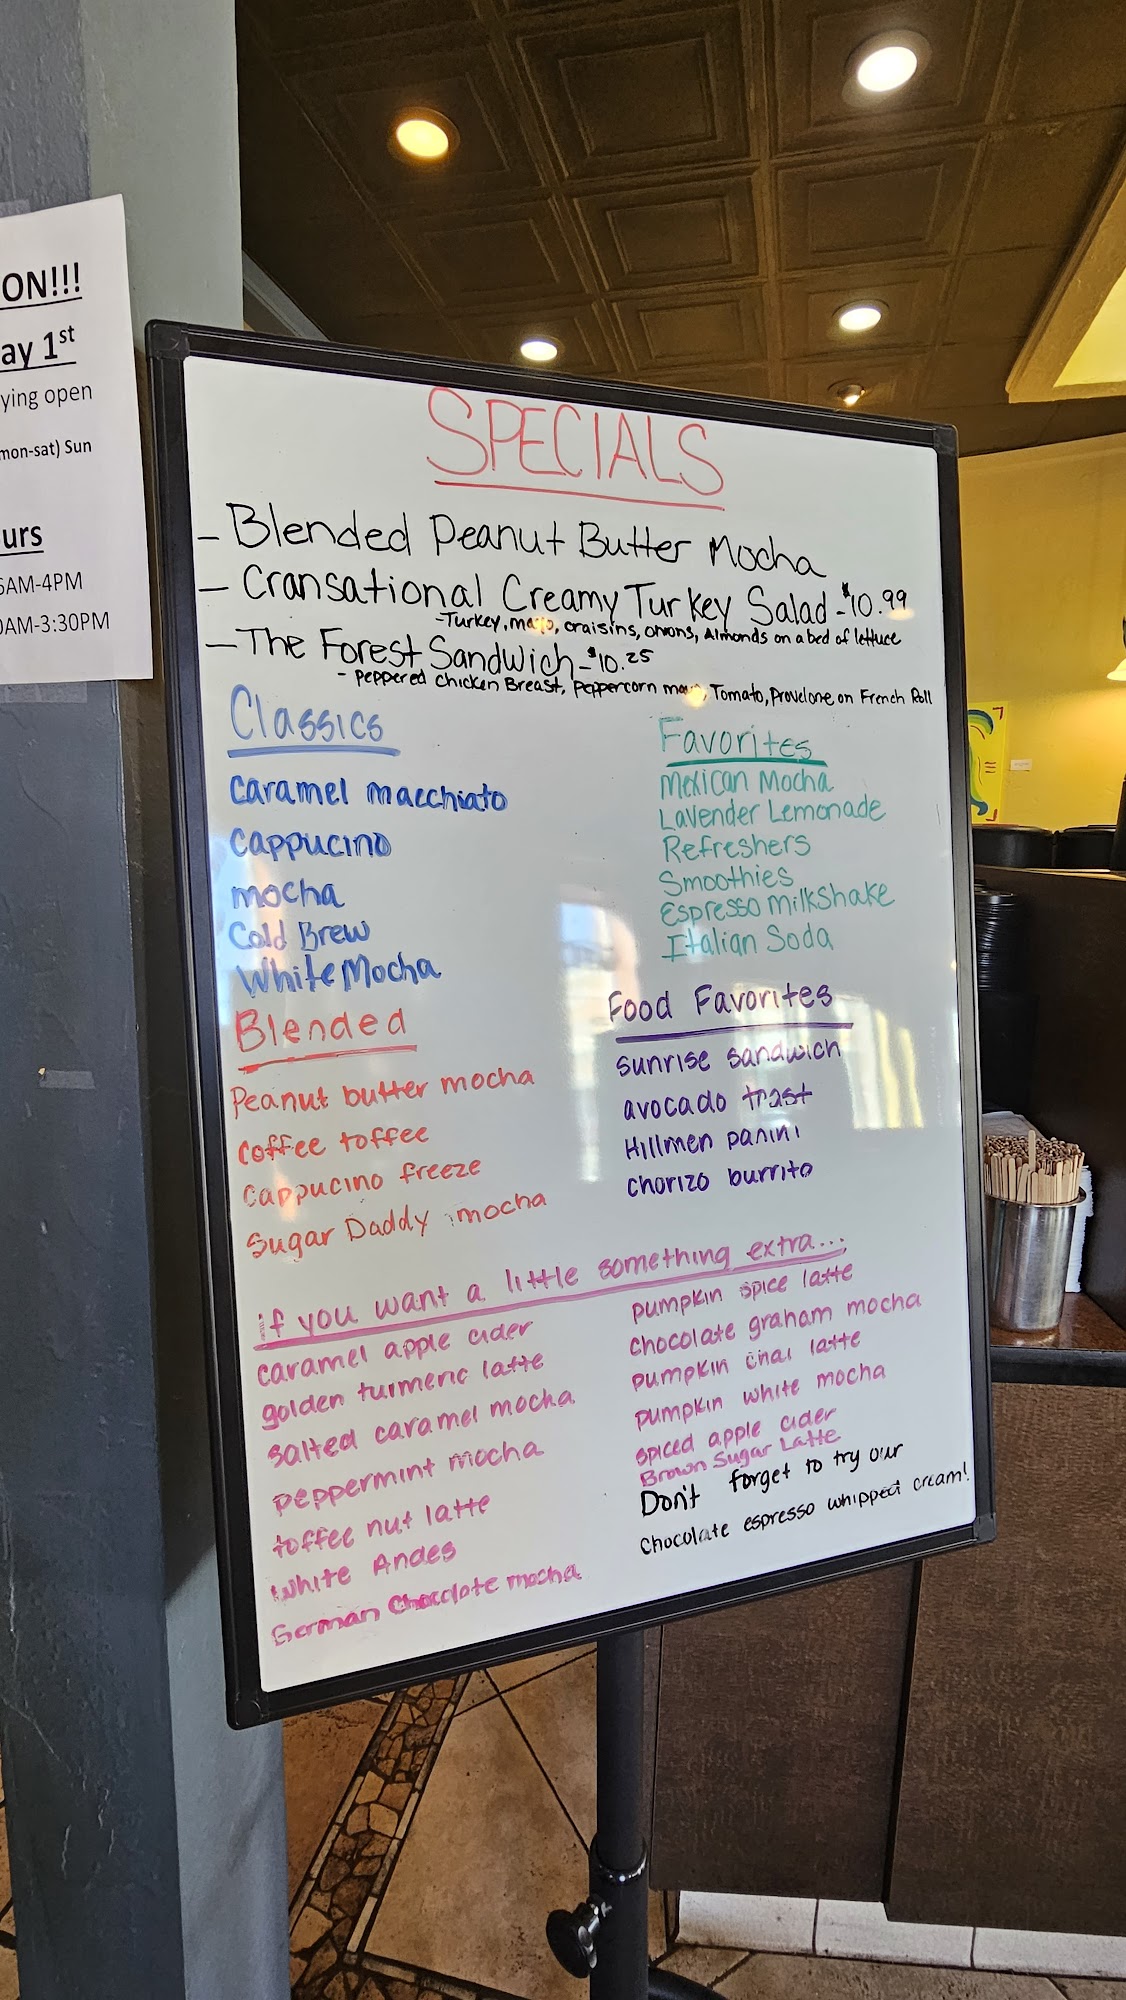 ON!!!
ay 1st
ying open
mon-sat) Sun
urs
AM-4PM
AM-3:30PM
SPECIALS
- Blended Peanut Butter Mocha
- Cransational Creamy Turkey Salad - $10.99
- Turkey, mayo, craisins, onions, Almonds on a bed of lettuce
- The Forest Sandwich - $10.25
- Peppered chicken Breast, Peppercorn mayo, Tomato, Provelone on French Roll
Classics
Caramel macchiato
Cappucino
mocha
Cold Brew
White Mocha
Favorites
Mexican Mocha
Lavender Lemonade
Refreshers
Smoothies
Espresso Milkshake
Italian Soda
Blended
Peanut butter mocha
Coffee toffee
Cappucino freeze
Sugar Daddy mocha
Food Favorites
sunrise sandwich
avocado toast
Hillmen panini
chorizo burrito
if you want a little something extra...
caramel apple cider
golden turmeric latte
salted caramel mocha
peppermint mocha
toffee nut latte
White Andes
German Chocolate mocha
pumpkin spice latte
chocolate graham mocha
pumpkin chai latte
pumpkin white mocha
spiced apple cider
Brown Sugar Latte
Don't forget to try our
Chocolate espresso whipped cream!